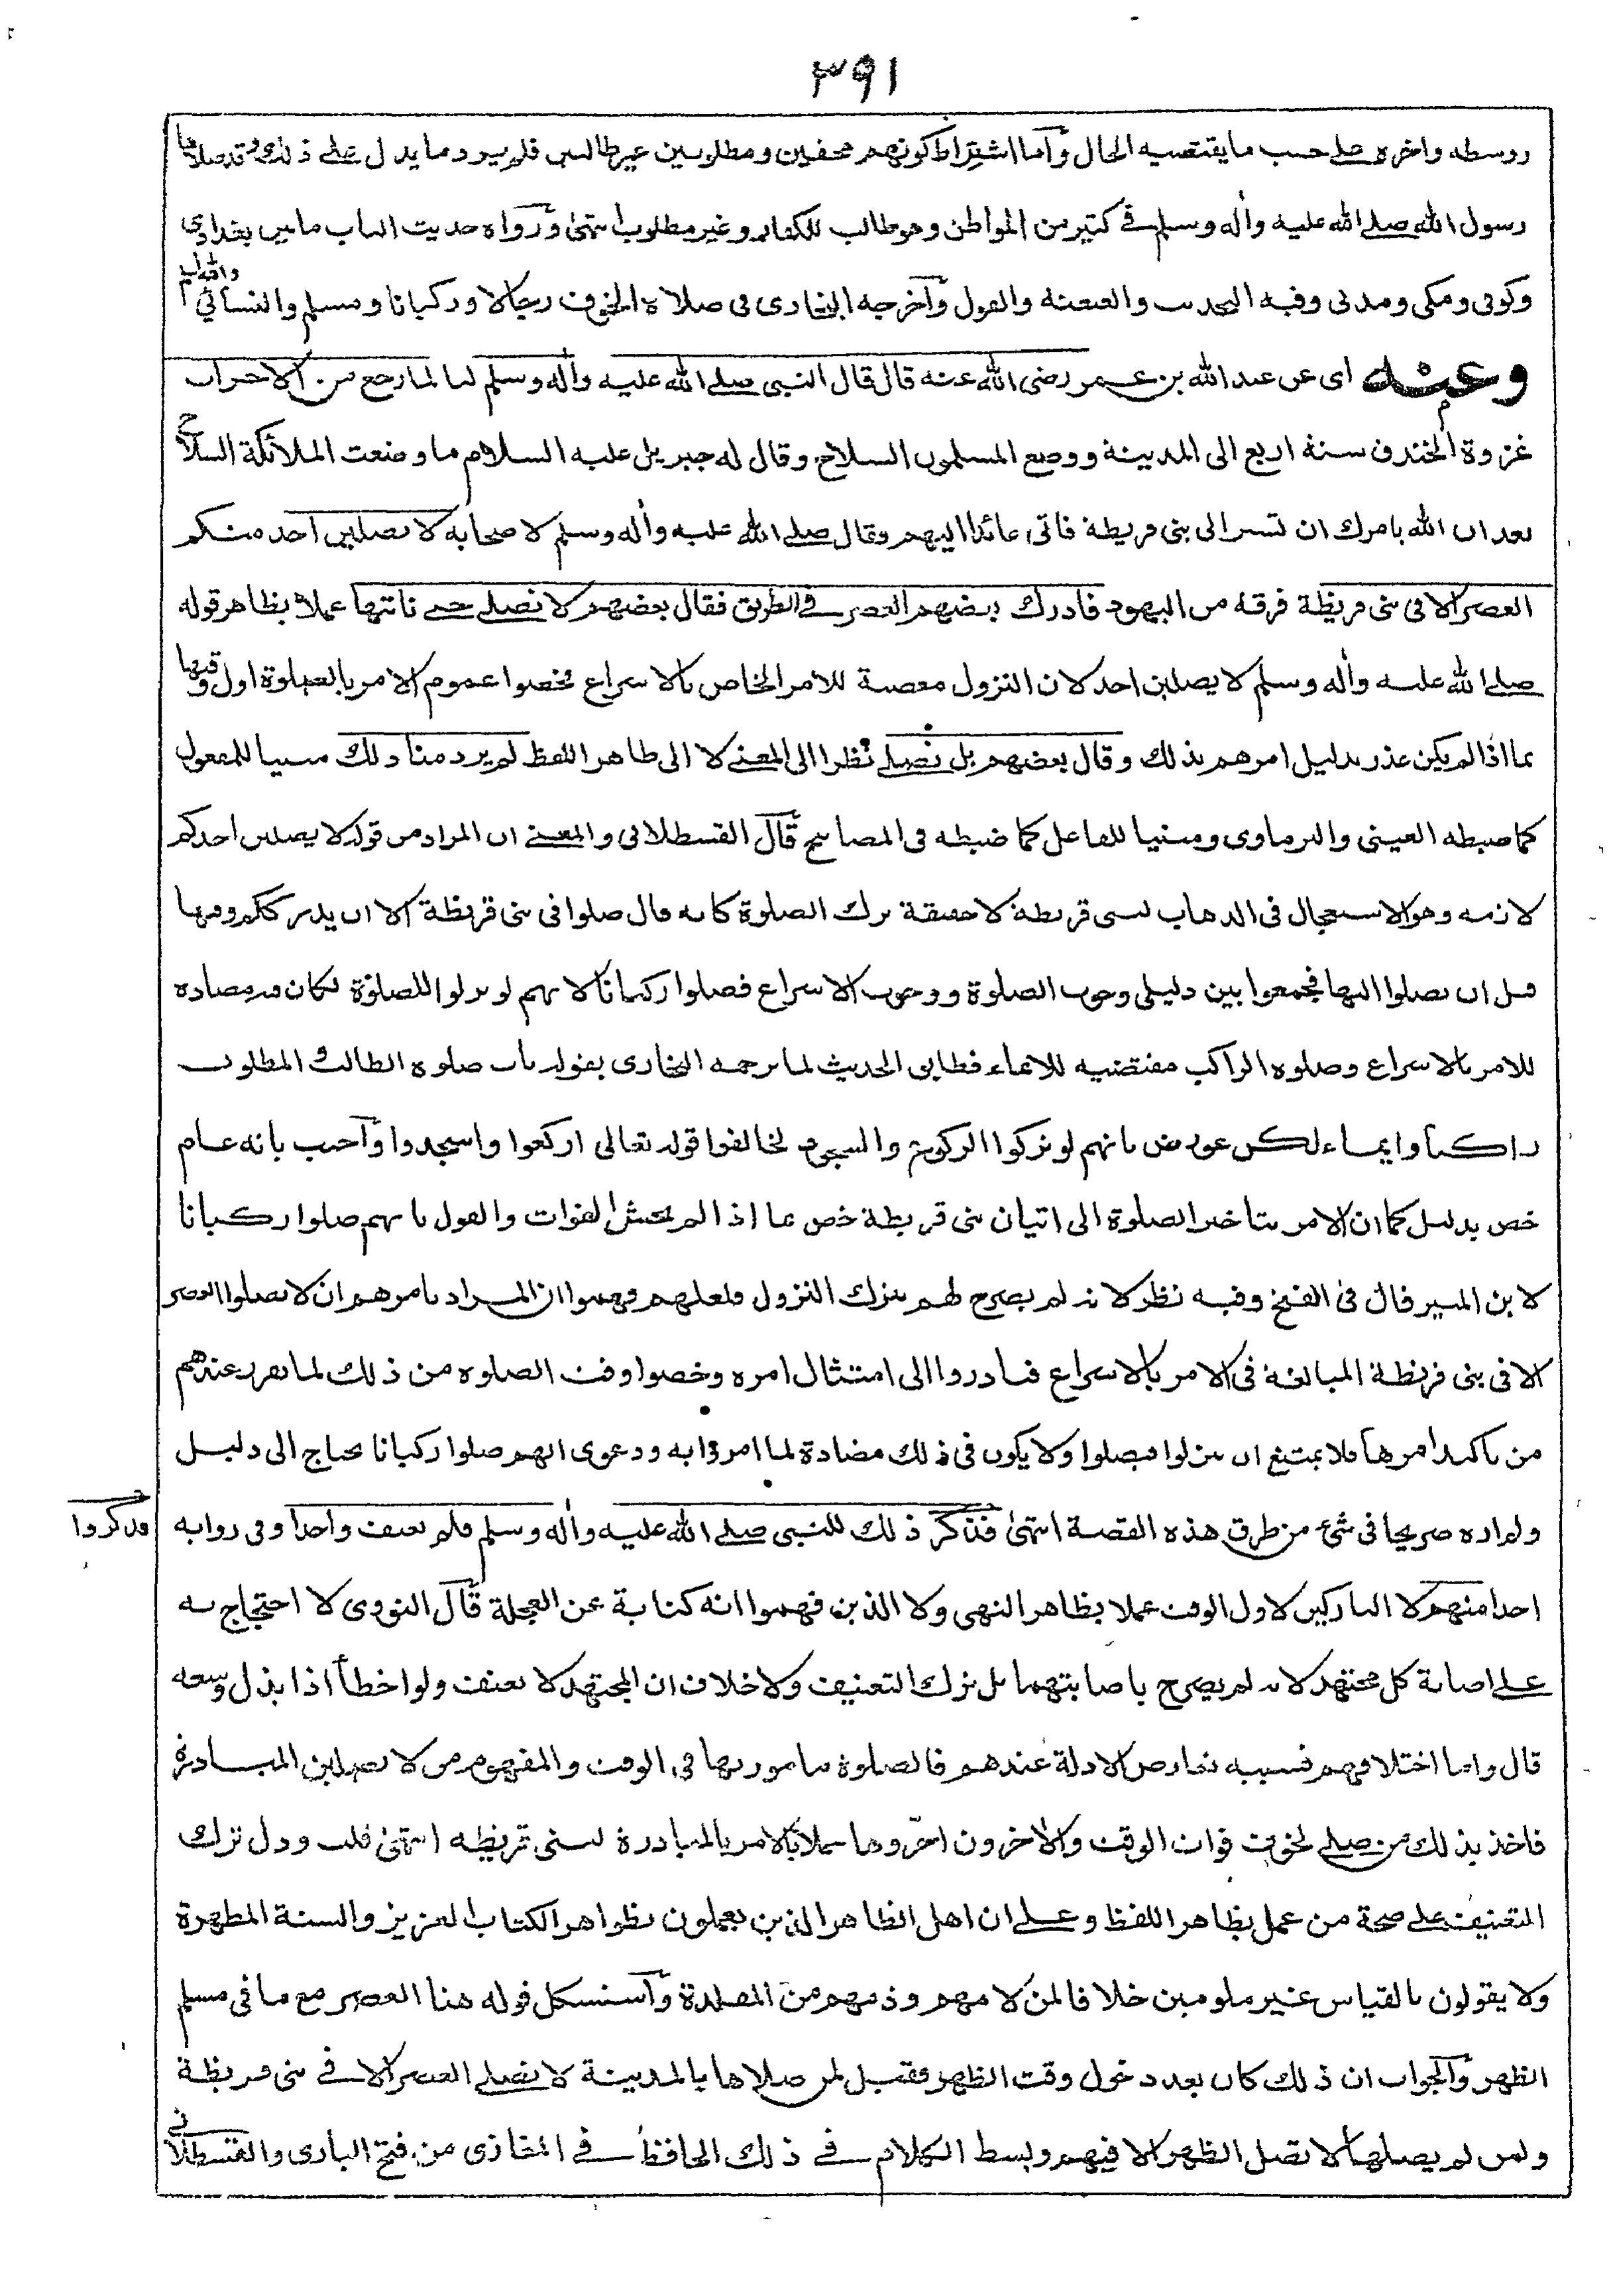 ٣٩١
ووسطه واخره على حسب ما يقتضيه الحال وأما اشتراط كونهم مخفين ومطلوبين غير طالبين فلم يرد ما يدل على ذلك وقد صلاها
رسول الله صلى الله عليه وأله وسلم في كثير من المواطن وهو طالب للكفار وغير مطلوب انتهى ورواة حديث الباب ما بين بغدادي
وكوفى ومكى ومدنى وفيه التحديث والعنعنة والقول وأخرجه البخارى فى صلاة الخوف رجالا وركبانا ومسلم والنسائي والله اعلم
وعنه اى عن عبد الله بن عمر رضى الله عنه قال قال النبى صلى الله عليه وأله وسلم لنا لما رجع من الاحزاب
غزوة الخندق سنة اربع الى المدينة ووضع المسلمون السلاح وقال له جبريل عليه السلام ما وضعت الملائكة السلاح
بعد ان الله يامرك ان تسير الى بنى قريظة فانى عائد اليهم وقال صلى الله عليه وأله وسلم لاصحابه لا يصلين احد منكم
العصر الا فى بنى قريظة فرقة من اليهود فادرك بعضهم العصر في الطريق فقال بعضهم لا نصلى حتى ناتيها عملا بظاهر قوله
صلى الله عليه وأله وسلم لا يصلين احد لان النزول معصية للامر الخاص بالاسراع فخصوا عموم الامر بالصلوة اول وقتها
بما اذا لم يكن عذر بدليل امرهم بذلك وقال بعضهم بل نصلى نظرا الى المعنى لا الى ظاهر اللفظ لم يرد منا ذلك مبنيا للمفعول
كما ضبطه العينى والبرماوى ومبنيا للفاعل كما ضبطه فى المصابيح قال القسطلانى والمعنى ان المراد من قوله لا يصلين احدكم
لازمه وهو الاستعجال فى الذهاب لبنى قريظة لا حقيقة ترك الصلوة كانه قال صلوا فى بنى قريظة الا ان يدرككم وقتها
قبل ان تصلوا اليها فجمعوا بين دليلى وجوب الصلوة ووجوب الاسراع فصلوا ركبانا لانهم لو نزلوا للصلوة لكان فيه مضادة
للامر بالاسراع وصلوة الراكب مقتضية للايماء فطابق الحديث لما ترجمه البخارى بقوله باب صلوة الطالب والمطلوب
راكبا وايماء لكن عورض بانهم لو تركوا الركوع والسجود لخالفوا قوله تعالى اركعوا واسجدوا وأجيب بانه عام
خص بدليل كما ان الامر بتاخير الصلوة الى اتيان بنى قريظة خص بما اذا لم يخش الفوات والقول بانهم صلوا ركبانا
لابن المنير قال فى الفتح وفيه نظر لانه لم يصرح لهم بترك النزول فلعلهم فهموا ان المراد بامرهم ان لا يصلوا العصر
الا فى بنى قريظة المبالغة فى الامر بالاسراع فبادروا الى امتثال امره وخصوا وقت الصلوة من ذلك لما تقرر عندهم
من تاكيد امرها فلا يمتنع ان ينزلوا فيصلوا ولا يكون فى ذلك مضادة لما امروا به ودعوى انهم صلوا ركبانا يحتاج الى دليل
ولم اره صريحا فى شئ من طرق هذه القصة انتهى فذكر ذلك للنبى صلى الله عليه وأله وسلم فلم يعنف واحدا وفى رواية
فذكروا
احدا منهم لا التاركين لاول الوقت عملا بظاهر النهى ولا الذين فهموا انه كناية عن العجلة قال النووى لا احتجاج به
على اصابة كل مجتهد لانه لم يصرح باصابتهما بل ترك التعنيف ولا خلاف ان المجتهد لا يعنف ولو اخطأ اذا بذل وسعه
قال واما اختلافهم فسببه تعارض الادلة عندهم فالصلوة مامور بها فى الوقت والمفهوم من لا يصلين المبادرة
فاخذ بذلك من صلى لخوف فوات الوقت والاخرون اخروها عملا بالامر بالمبادرة لبنى قريظة انتهى قلت ودل ترك
التعنيف على صحة من عمل بظاهر اللفظ وعلى ان اهل الظاهر الذين يعملون بظواهر الكتاب العزيز والسنة المطهرة
ولا يقولون بالقياس غير ملومين خلافا لمن لامهم وذمهم من المقلدة وأستشكل قوله هنا العصر مع ما فى مسلم
الظهر وألجواب ان ذلك كان بعد دخول وقت الظهر فقيل لمن صلاها بالمدينة لا تصلى العصر الا فى بنى قريظة
ولمن لم يصلها لا تصل الظهر الا فيهم وبسط الكلام فى ذلك الحافظ فى المغازى من فتح البارى والقسطلانى